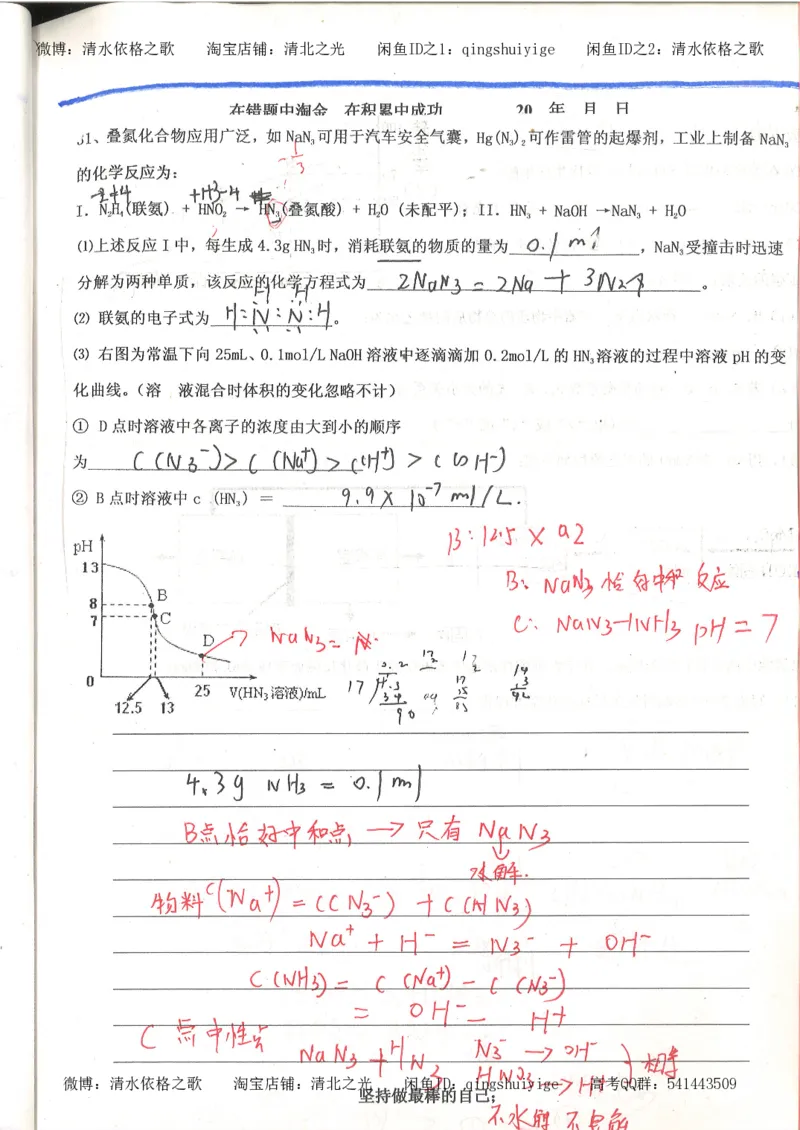 微博：清水依格之歌 淘宝店铺：清北之光 闲鱼ID之1：qingshuiyige 闲鱼ID之2：清水依格之歌
在错题中淘金 在积累中成功 20 年 月 日
31、叠氮化合物应用广泛，如 NaN₃可用于汽车安全气囊，Hg(N₃)₂可作雷管的起爆剂，工业上制备 NaN₃
-1/3
的化学反应为：
-2+4 +H3-4
I. N₂H₄(联氨) + HNO₂ → HN₃(叠氮酸) + H₂O (未配平)；II. HN₃ + NaOH →NaN₃ + H₂O
⑴上述反应 I 中，每生成 4.3g HN₃时，消耗联氨的物质的量为 0.1 mol ，NaN₃受撞击时迅速
分解为两种单质，该反应的化学方程式为 2NaN3 = 2Na + 3N2↑ 。
H H
⑵ 联氨的电子式为 H:N:N:H 。
⑶ 右图为常温下向 25mL、0.1mol/L NaOH 溶液中逐滴滴加 0.2mol/L 的 HN₃溶液的过程中溶液 pH 的变
化曲线。（溶 液混合时体积的变化忽略不计）
① D 点时溶液中各离子的浓度由大到小的顺序
为 C(N3⁻)> C(Na⁺) > C(H⁺) > C(OH⁻)
② B 点时溶液中 c (HN₃) = 9.9×10⁻⁷ mol/L.
B:12.5 × 0.2
pH
13
B: NaN3 恰自中和 反应
8 B
7 C
C: NaN3-HNH3 pH=7
D
NaN3=
0
25
V(HN₃溶液)/mL
12.5 13
4.3g NH3 = 0.1 mol
B点恰好中和点 → 只有 NaN3
水解.
物料 C(Na⁺) = C(N3⁻) + C(HN3)
Na⁺ + H⁻ = N3⁻ + OH⁻
C(NH3) = C(Na⁺) - C(N3⁻)
= OH⁻ - H⁺
C 点中性点
NaN3 + HN3 N3⁻ → OH⁻
HN3 → H⁺ 相等
微博：清水依格之歌 淘宝店铺：清北之光 闲鱼ID：qingshuiyige 高考QQ群：541443509
坚持做最棒的自己；
不水解